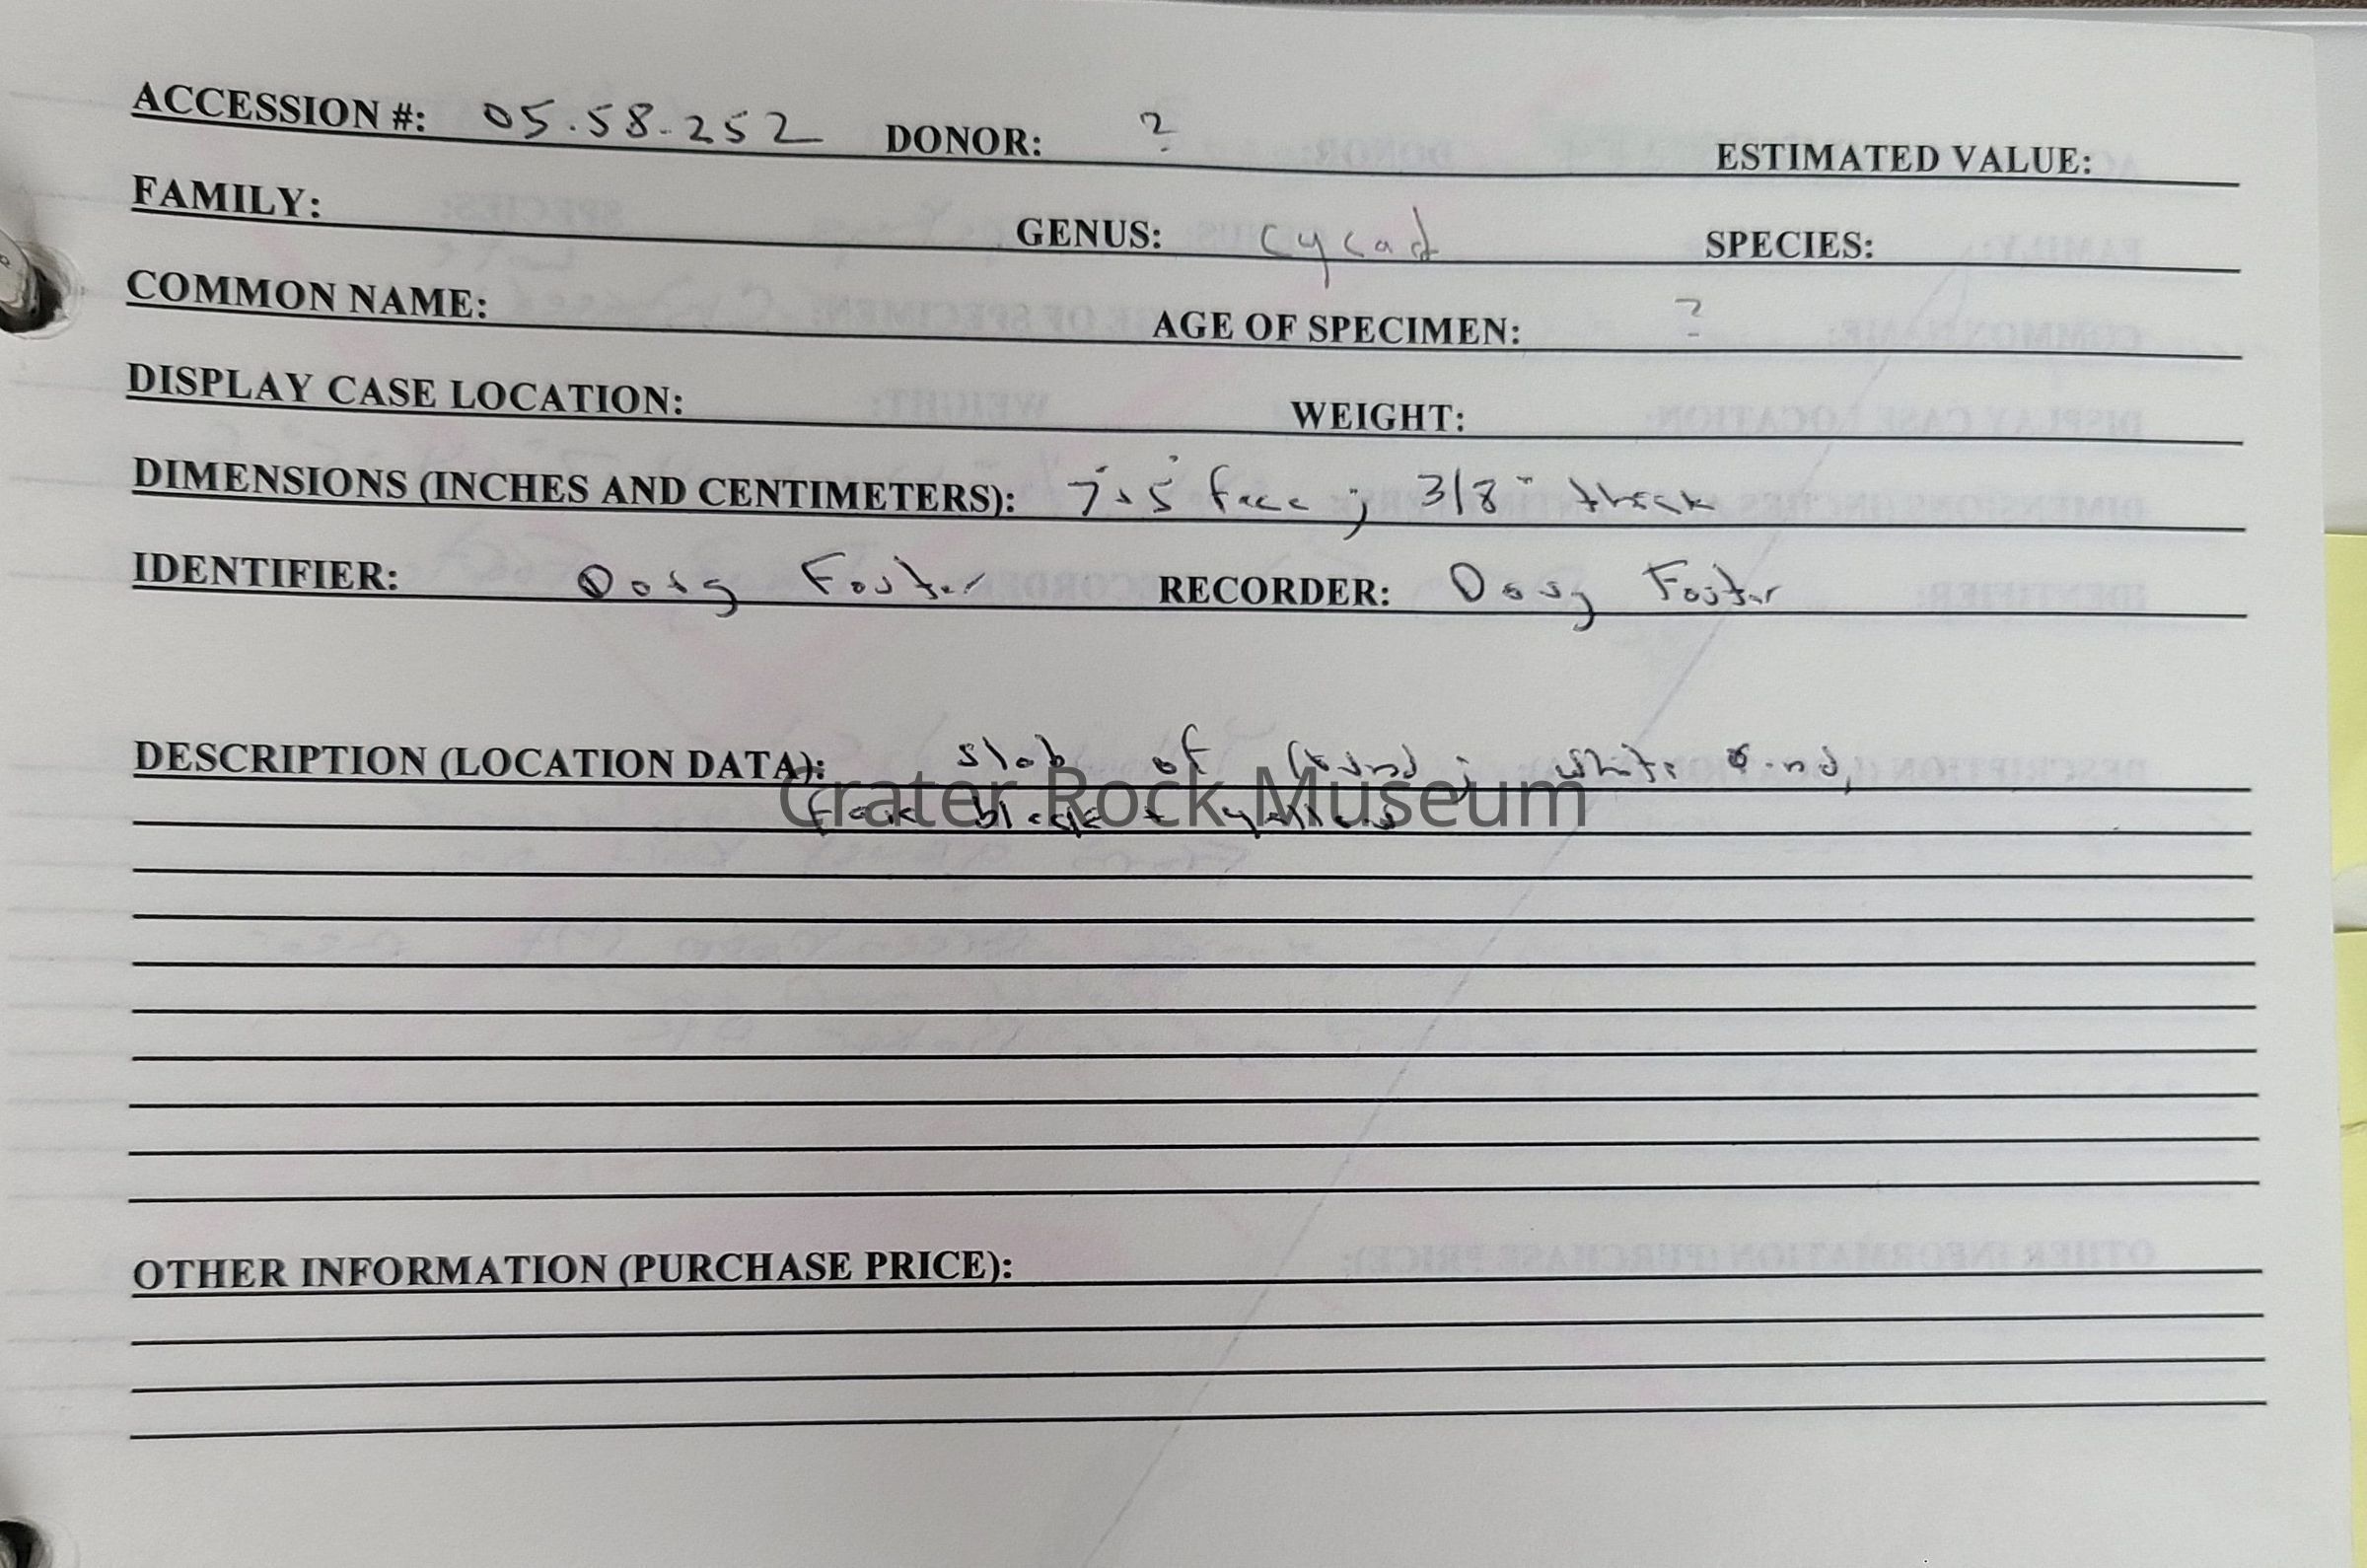 ACCESSION #: 05.58.252 DONOR: ? ESTIMATED VALUE:
FAMILY: GENUS: cycad SPECIES:
COMMON NAME: AGE OF SPECIMEN: ?
DISPLAY CASE LOCATION: WEIGHT:
DIMENSIONS (INCHES AND CENTIMETERS): 7" x 5" face ; 3/8" thick
IDENTIFIER: Doug Foster RECORDER: Doug Foster
DESCRIPTION (LOCATION DATA): slab of ; white
black + yellows
Crater Rock Museum
OTHER INFORMATION (PURCHASE PRICE):